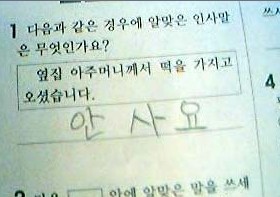 쓰시
1 다음과 같은 경우에 알맞은 인사말
은 무엇인가요?
옆집 아주머니께서 떡을 가지고
오셨습니다.
4
안 사 요
안에 알맞은 말을 쓰세